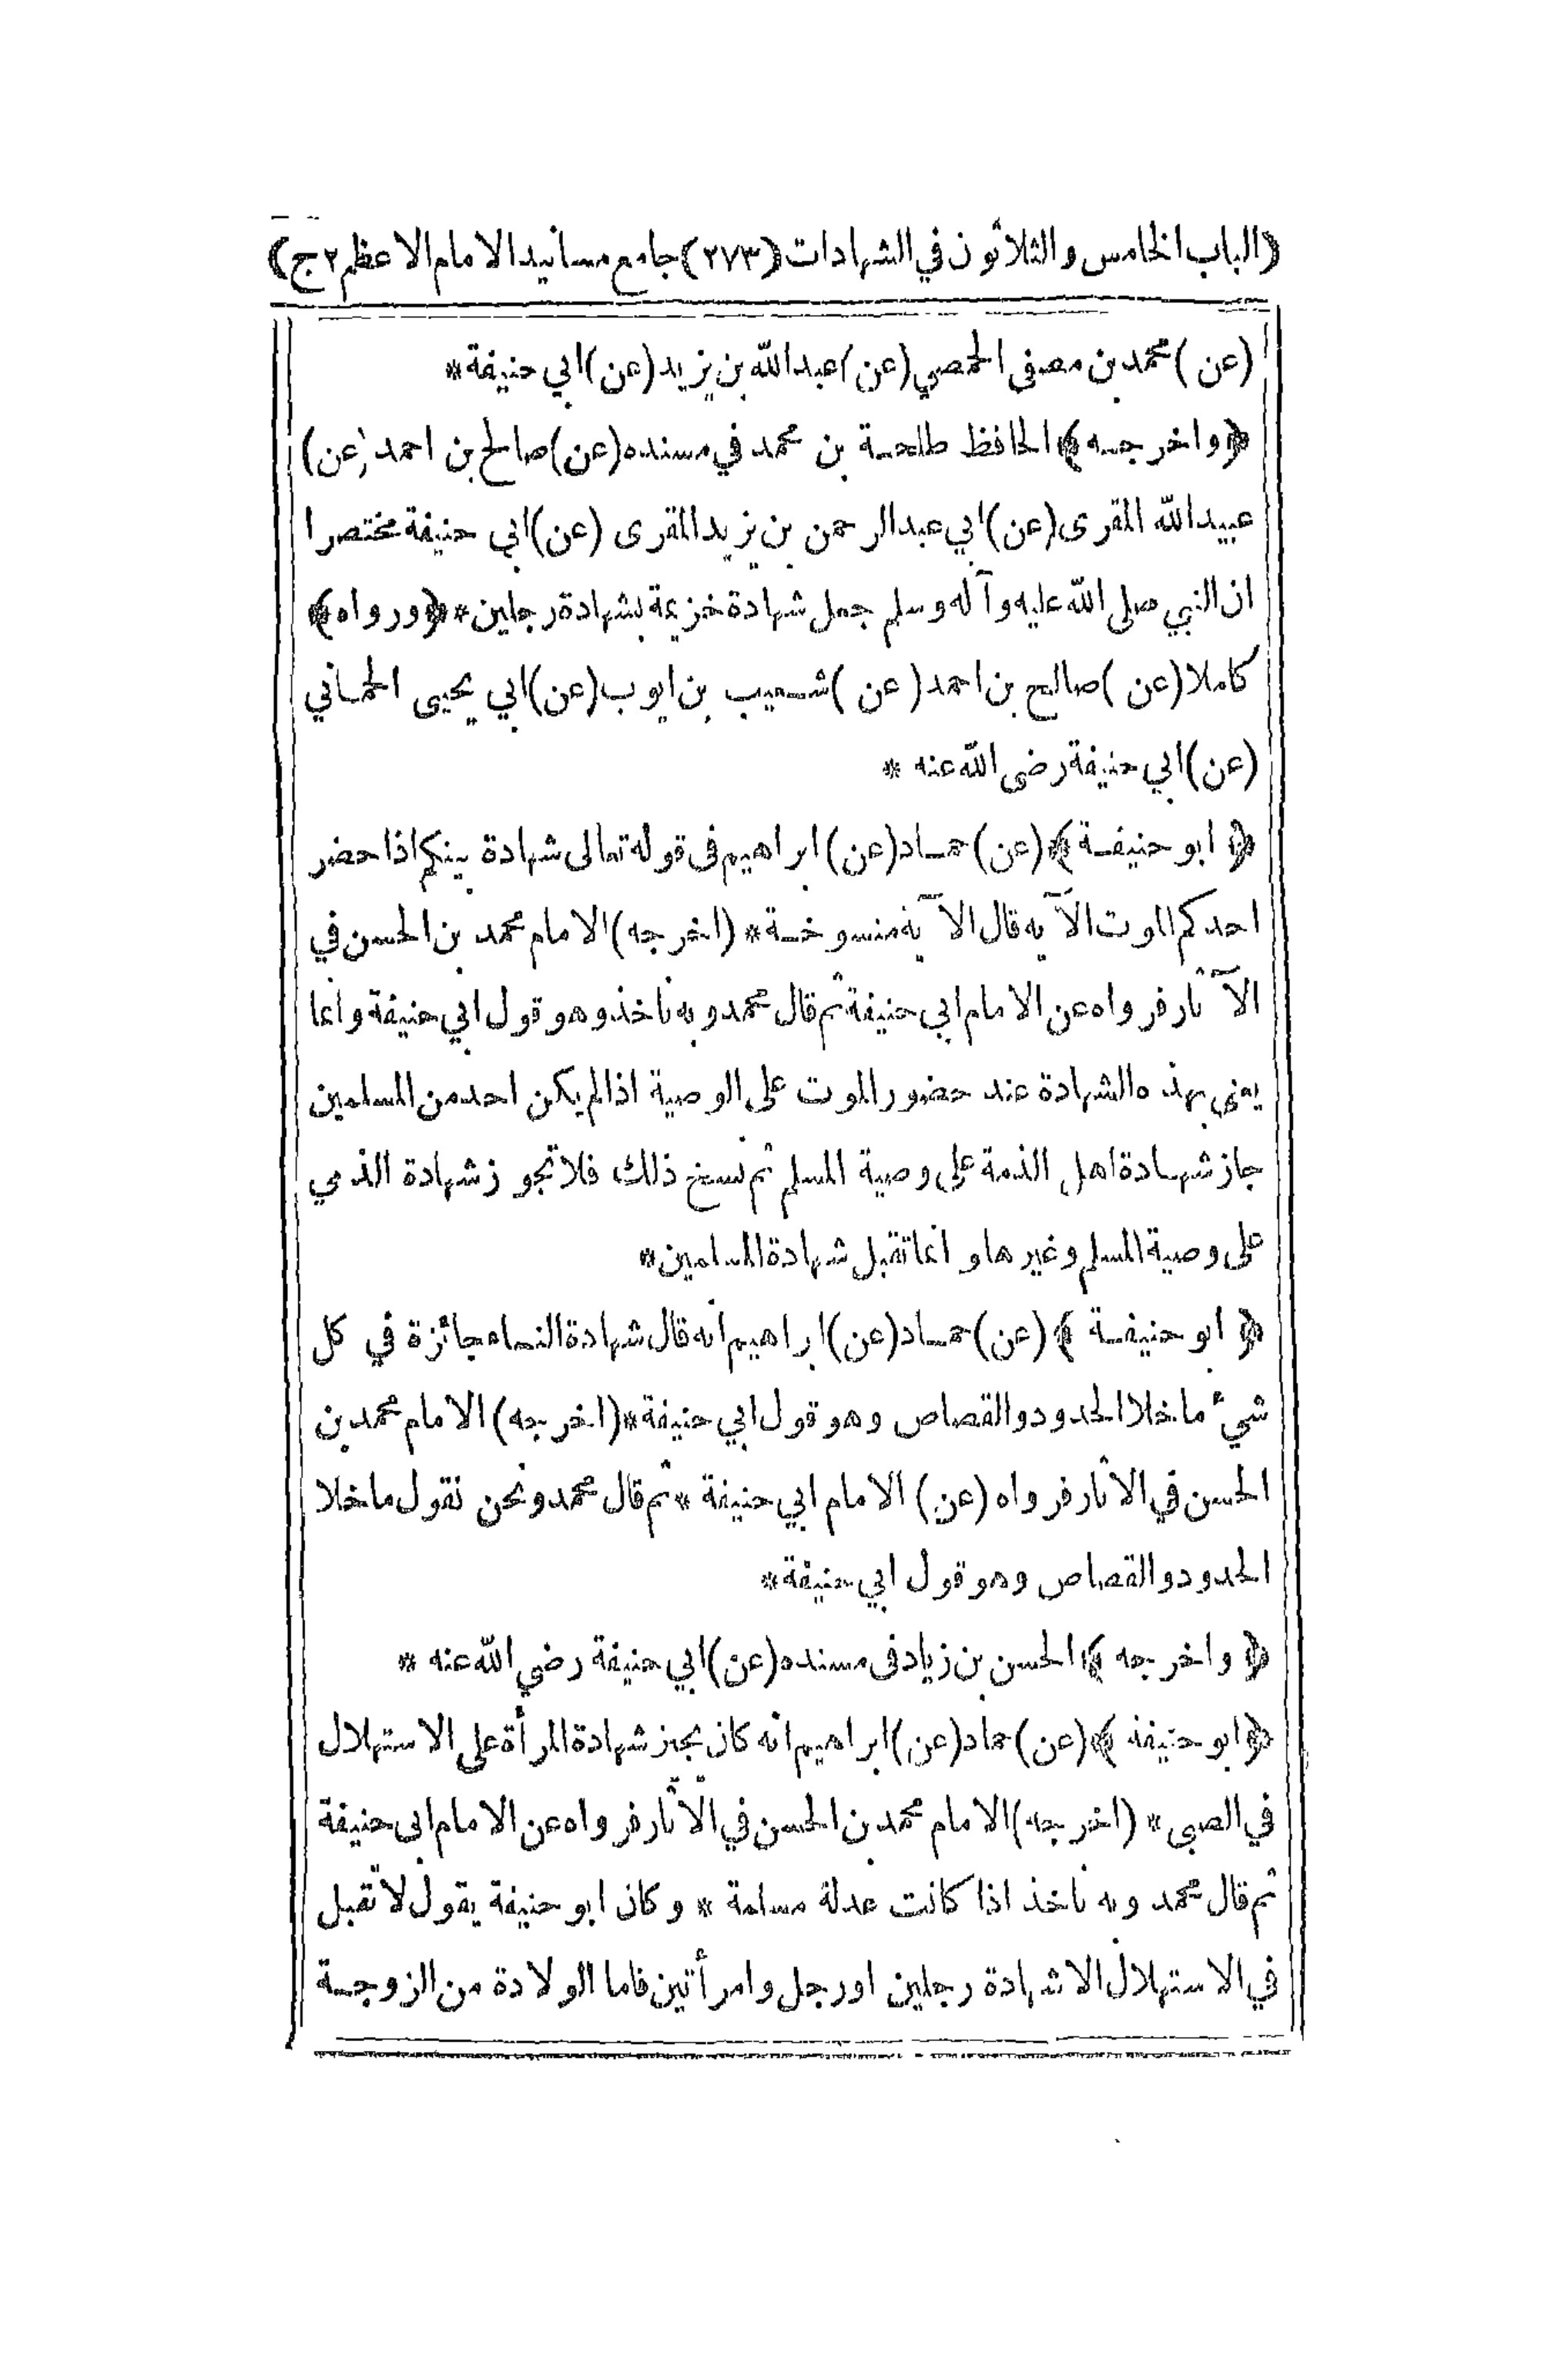 (الباب الخامس والثلاثون في الشهادات (٢٧٣) جامع مسانيد الامام الاعظم ٢ ج)
(عن) محمد بن مصفى الحمصي (عن) عبدالله بن يزيد (عن) ابي حنيفة *
﴿واخرجه﴾ الحافظ طلحة بن محمد في مسنده (عن) صالح بن احمد (عن)
عبيدالله المقرى (عن) ابي عبدالرحمن بن يزيد المقرى (عن) ابي حنيفة مختصرا
ان النبي صلى الله عليه وآله وسلم جعل شهادة خزيمة بشهادة رجلين * ﴿ورواه﴾
كاملا (عن) صالح بن احمد (عن) شعيب بن ايوب (عن) ابي يحيى الحماني
(عن) ابي حنيفة رضى الله عنه *
﴿ابو حنيفة﴾ (عن) حماد (عن) ابراهيم فى قوله تعالى شهادة بينكم اذا حضر
احدكم الموت الآيه قال الآية منسوخة * (اخرجه) الامام محمد بن الحسن في
الآثار فرواه عن الامام ابي حنيفة ثم قال محمد وبه ناخذ وهو قول ابي حنيفة وانما
يعنى بهذه الشهادة عند حضور الموت على الوصية اذا لم يكن احد من المسلمين
جاز شهادة اهل الذمة على وصية المسلم ثم نسخ ذلك فلا تجوز شهادة الذمي
على وصية المسلم وغيرها وانما تقبل شهادة المسلمين *
﴿ابو حنيفة﴾ (عن) حماد (عن) ابراهيم انه قال شهادة النساء جائزة في كل
شيء ما خلا الحدود والقصاص وهو قول ابي حنيفة * (اخرجه) الامام محمد بن
الحسن في الآثار فرواه (عن) الامام ابي حنيفة * ثم قال محمد ونحن نقول ما خلا
الحدود والقصاص وهو قول ابي حنيفة *
﴿واخرجه﴾ الحسن بن زياد فى مسنده (عن) ابي حنيفة رضي الله عنه *
﴿ابو حنيفة﴾ (عن) حماد (عن) ابراهيم انه كان يجيز شهادة المرأة على الاستهلال
في الصبى * (اخرجه) الامام محمد بن الحسن في الآثار فرواه عن الامام ابى حنيفة
ثم قال محمد وبه ناخذ اذا كانت عدلة مسلمة * وكان ابو حنيفة يقول لا تقبل
في الاستهلال الا شهادة رجلين او رجل وامرأتين فاما الولادة من الزوجة